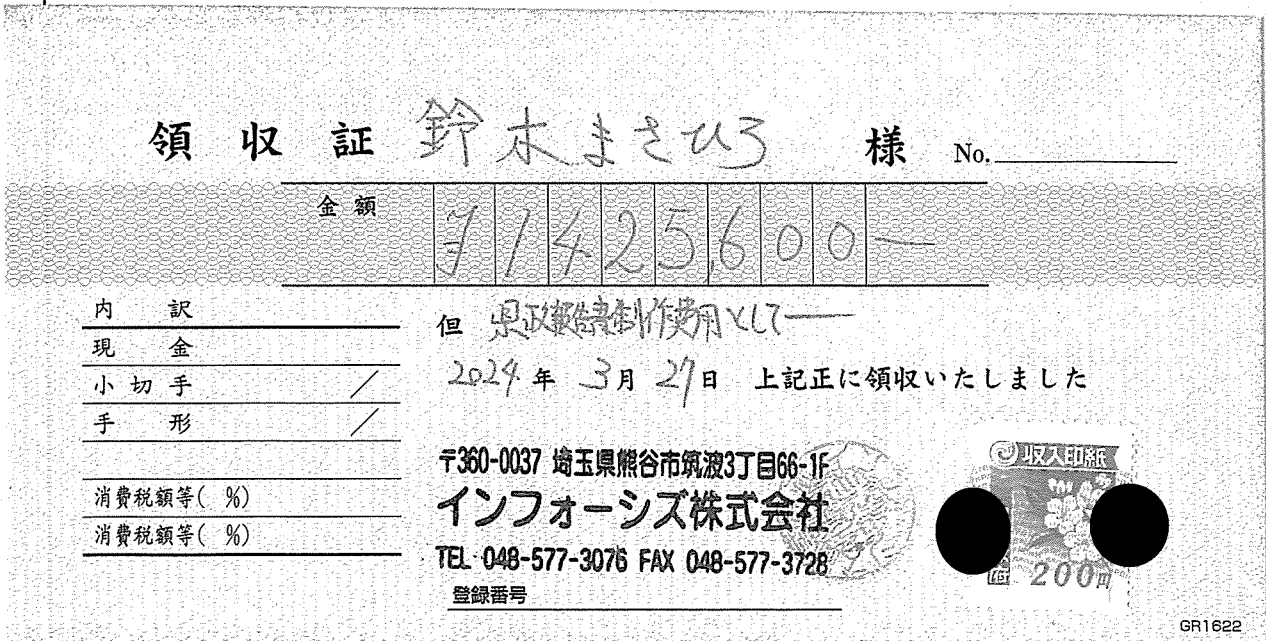 領収証 鈴木まさひろ 様 No.
金額 ¥1425,600—
内訳
現金
小切手 /
手形 /
消費税額等( %)
消費税額等( %)
但 県政報告書制作費用として—
2024年 3月 27日 上記正に領収いたしました
〒360-0037 埼玉県熊谷市筑波3丁目66-1F
インフォーシズ株式会社
TEL 048-577-3076 FAX 048-577-3728
登録番号
収入印紙
200円
GR1622